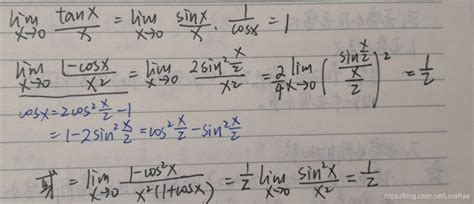 lim x→0 tanx/x = lim x→0 sinx/x · 1/cosx = 1
lim x→0 (1-cosx)/x² = lim x→0 (2sin² x/2)/x² = 2/4 lim x→0 (sin x/2 / x/2)² = 1/2
cosx = 2cos² x/2 - 1
= 1-2sin² x/2 = cos² x/2 - sin² x/2
= lim x→0 (1-cos²x)/(x²(1+cosx)) = 1/2 lim x→0 sin²x/x² = 1/2
https://blog.csdn.net/LoraRae